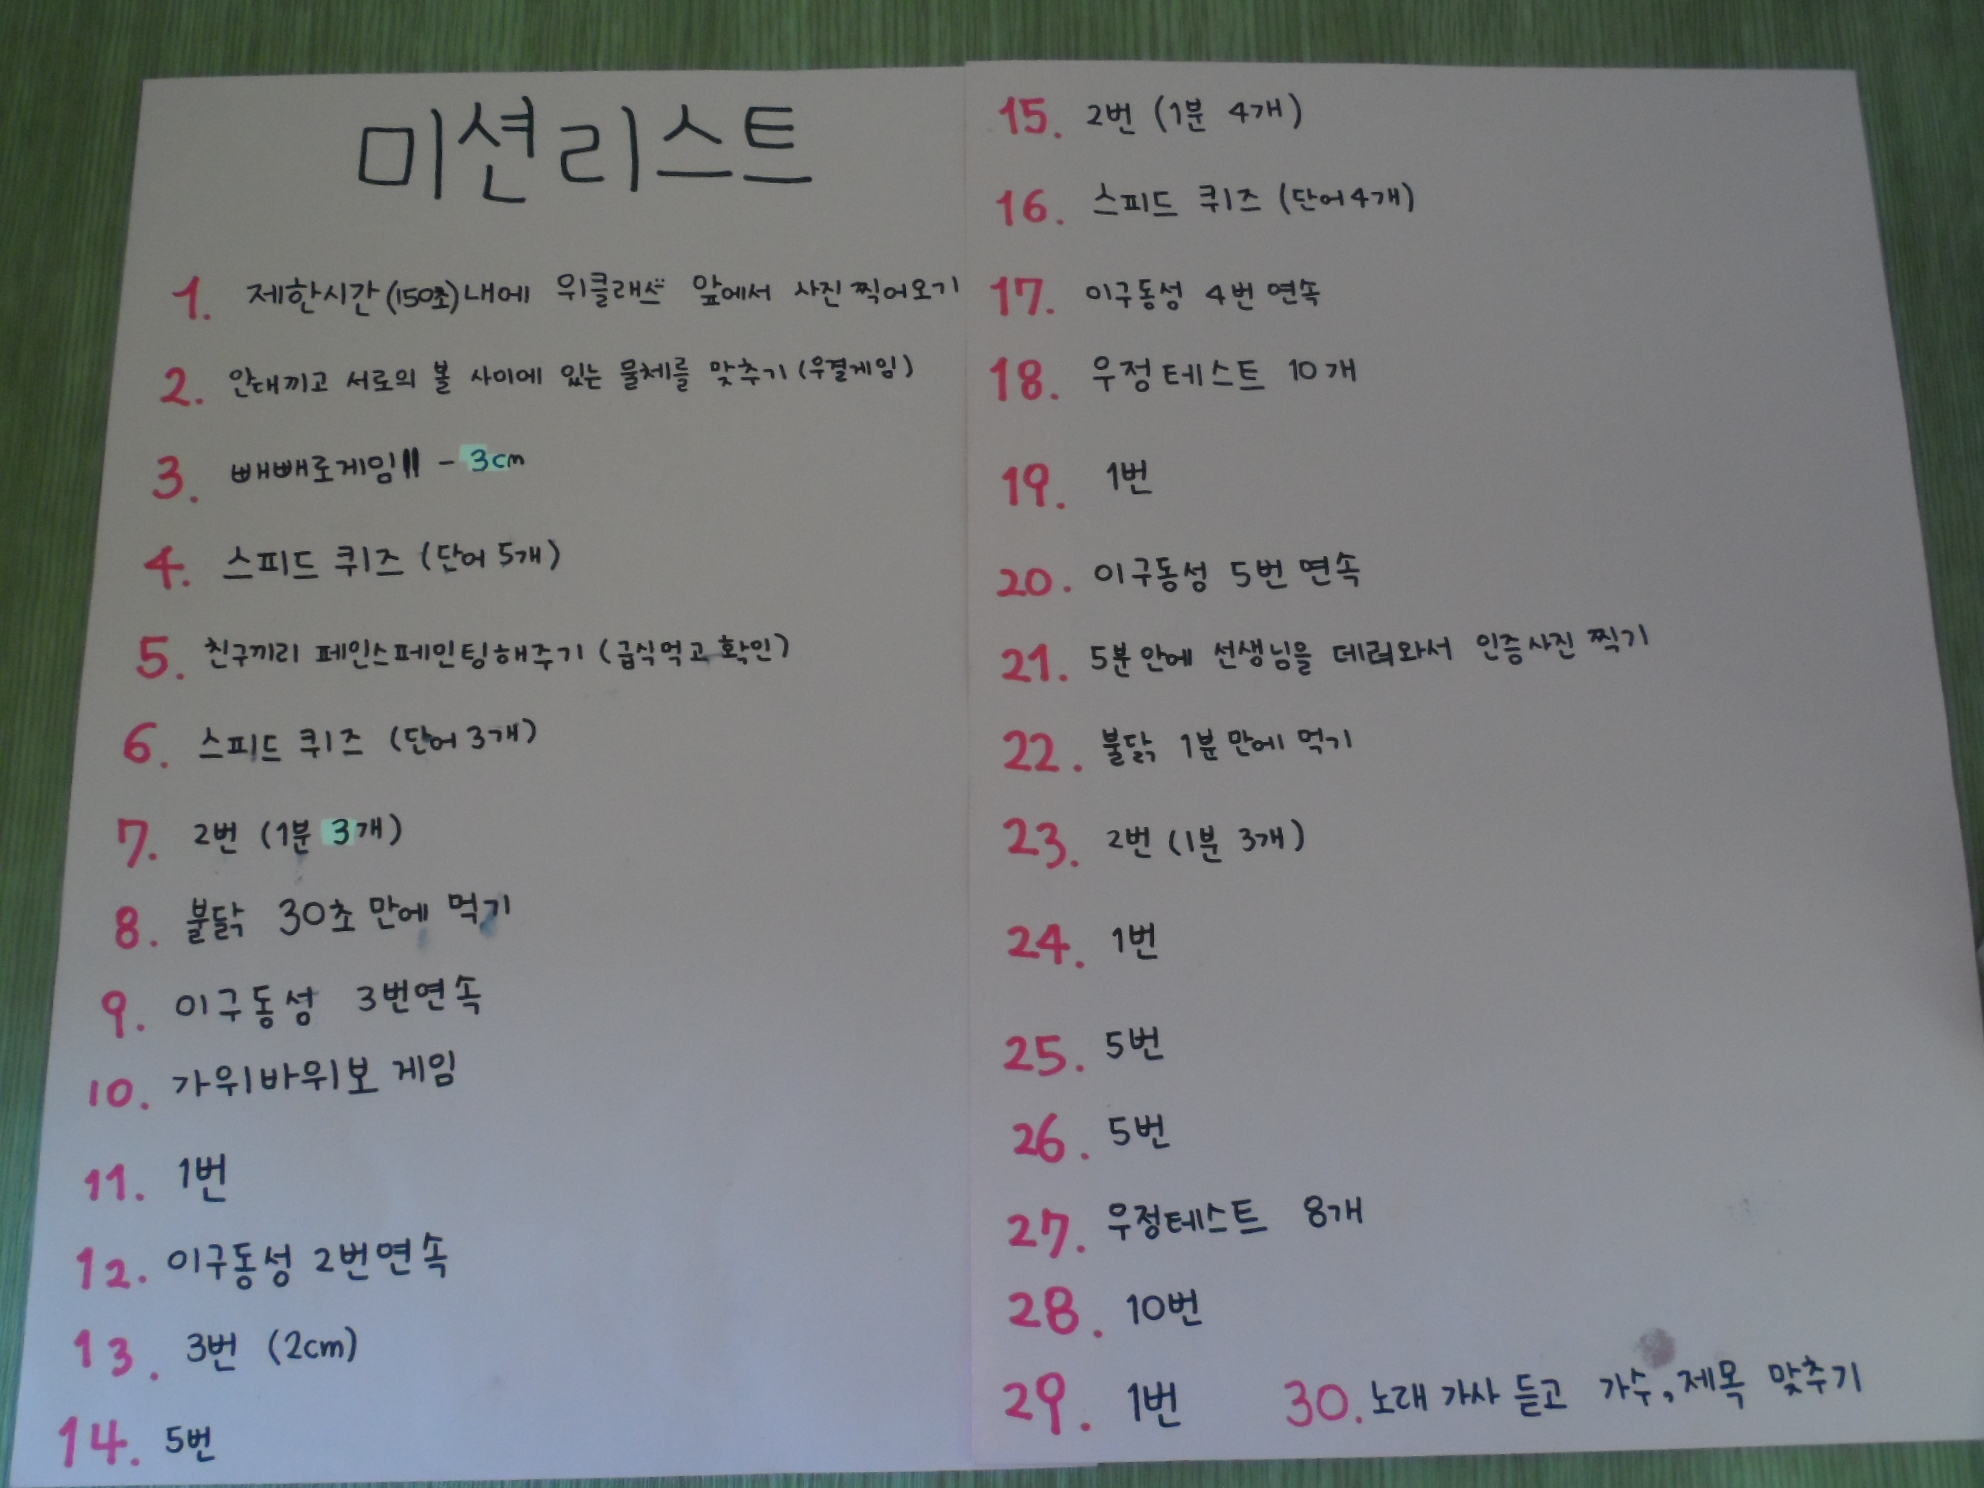 미션리스트
1. 제한시간(150초)내에 위클래스 앞에서 사진 찍어오기
2. 안대끼고 서로의 볼 사이에 있는 물체를 맞추기 (우결게임)
3. 빼빼로게임 - 3cm
4. 스피드 퀴즈 (단어 5개)
5. 친구끼리 페인스페인팅해주기 (급식먹고 확인)
6. 스피드 퀴즈 (단어 3개)
7. 2번 (1분 3개)
8. 불닭 30초 만에 먹기
9. 이구동성 3번연속
10. 가위바위보 게임
11. 1번
12. 이구동성 2번연속
13. 3번 (2cm)
14. 5번
15. 2번 (1분 4개)
16. 스피드 퀴즈 (단어4개)
17. 이구동성 4번 연속
18. 우정테스트 10개
19. 1번
20. 이구동성 5번 연속
21. 5분안에 선생님을 데려와서 인증사진 찍기
22. 불닭 1분만에 먹기
23. 2번 (1분 3개)
24. 1번
25. 5번
26. 5번
27. 우정테스트 8개
28. 10번
29. 1번
30. 노래 가사 듣고 가수, 제목 맞추기